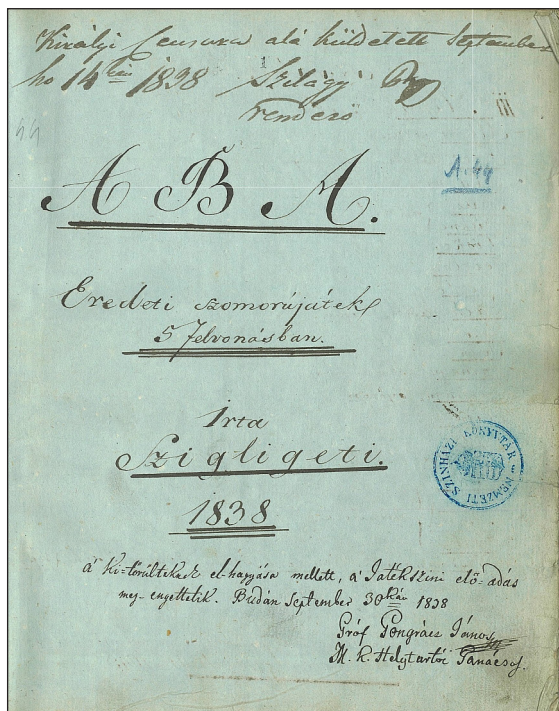 Királyi Censura alá küldetett September
hó 14kén 1838 Szilágyi
rendező
44
A. 44
ABA.
Eredeti szomorújáték
5 felvonásban.
Irta
Szigligeti.
1838
NEMZETI SZINHÁZ KÖNYVTÁR
A' ki-törülteknek el-hagyása mellett, a' Játékszini elő-adás
meg-engettetik. Budán September 30kán 1838
Gróf Pongrácz János
M. K. Helytartói Tanácsos.